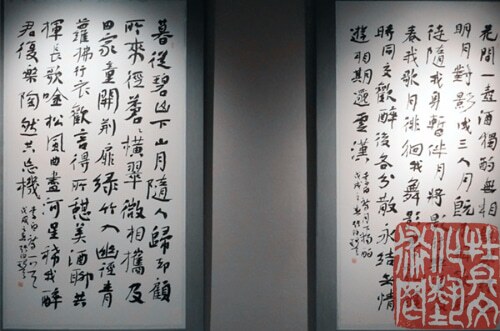 花間一壺酒獨酌無相
明月對影成三人月既
徒隨我身暫伴月將影
春我歌月徘徊我舞影
時同交歡醉後各分散永結無情
遊相期邈雲漢
暮從碧山下山月隨人歸却顧
所來徑蒼〻橫翠微相攜及
田家童開荆扉綠竹入幽徑青
蘿拂行衣歡言得所憩美酒聊共
揮長歌吟松風曲盡河星稀我醉
君復樂陶然共忘機